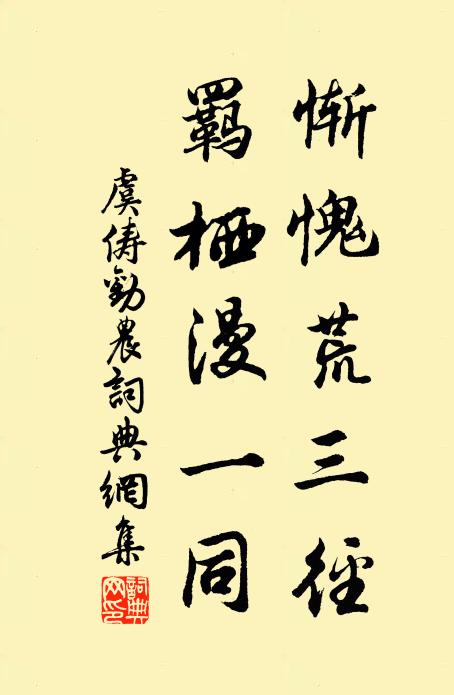 慚愧荒三徑
羈栖漫一同
虞儔勸農詞典網集
詞典網印